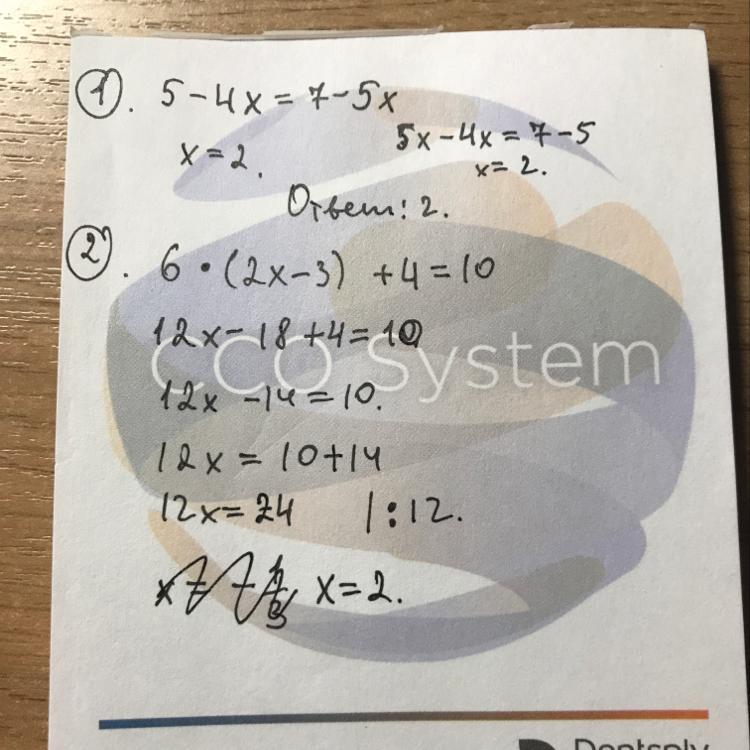 1. 5-4x=7-5x
5x-4x=7-5
x=2.
x=2.
Ответ: 2.
2. 6·(2x-3)+4=10
12x-18+4=10
CCO System
12x-14=10.
12x=10+14
12x=24 |:12.
x=2.
Dentsply